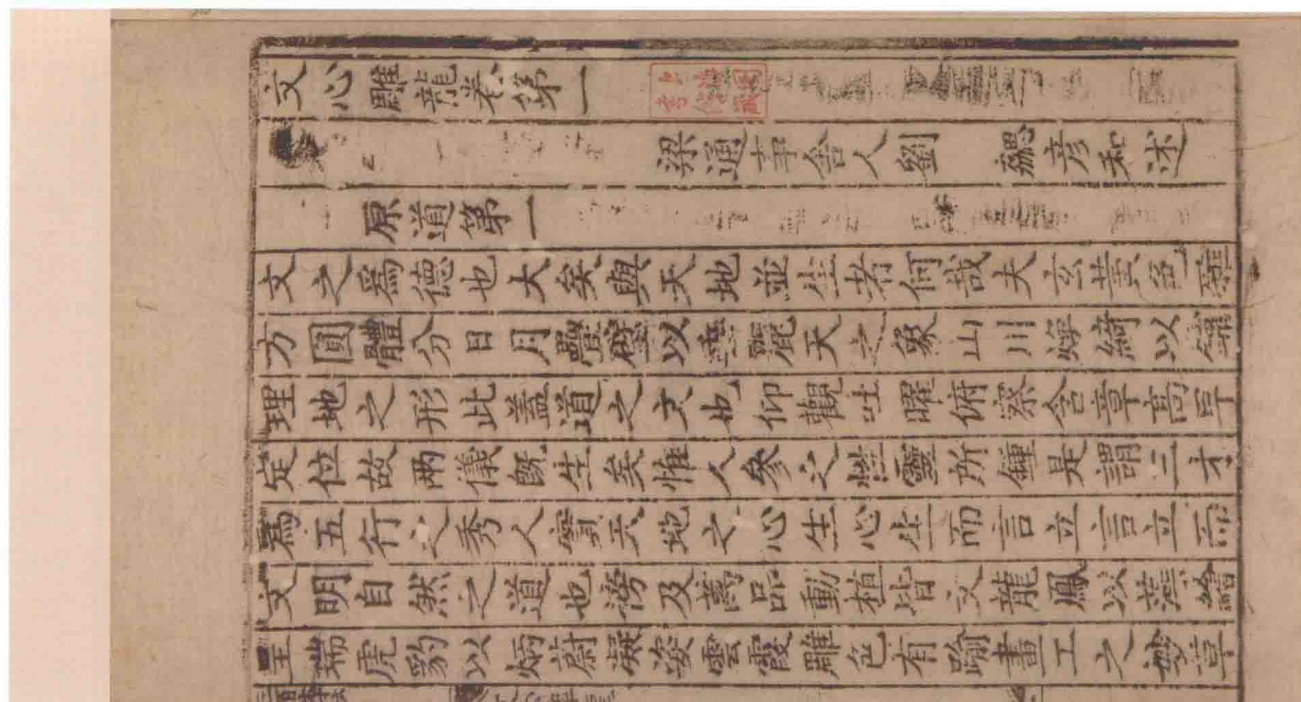 文心雕龍卷第一
上海圖書館藏
梁通事舍人劉 勰彦和述
原道第一
文之爲德也大矣與天地並生者何哉夫玄黃色雜
方圓體分日月疊璧以垂麗天之象山川煥綺以鋪
理地之形此盖道之文也仰觀吐曜俯察含章高卑
定位故兩儀旣生矣惟人參之性靈所鍾是謂三才
爲五行之秀人實天地之心生心生而言立言立而
文明自然之道也傍及萬品動植皆文龍鳳以藻繪
呈瑞虎豹以炳蔚凝姿雲霞雕色有踰畫工之妙草